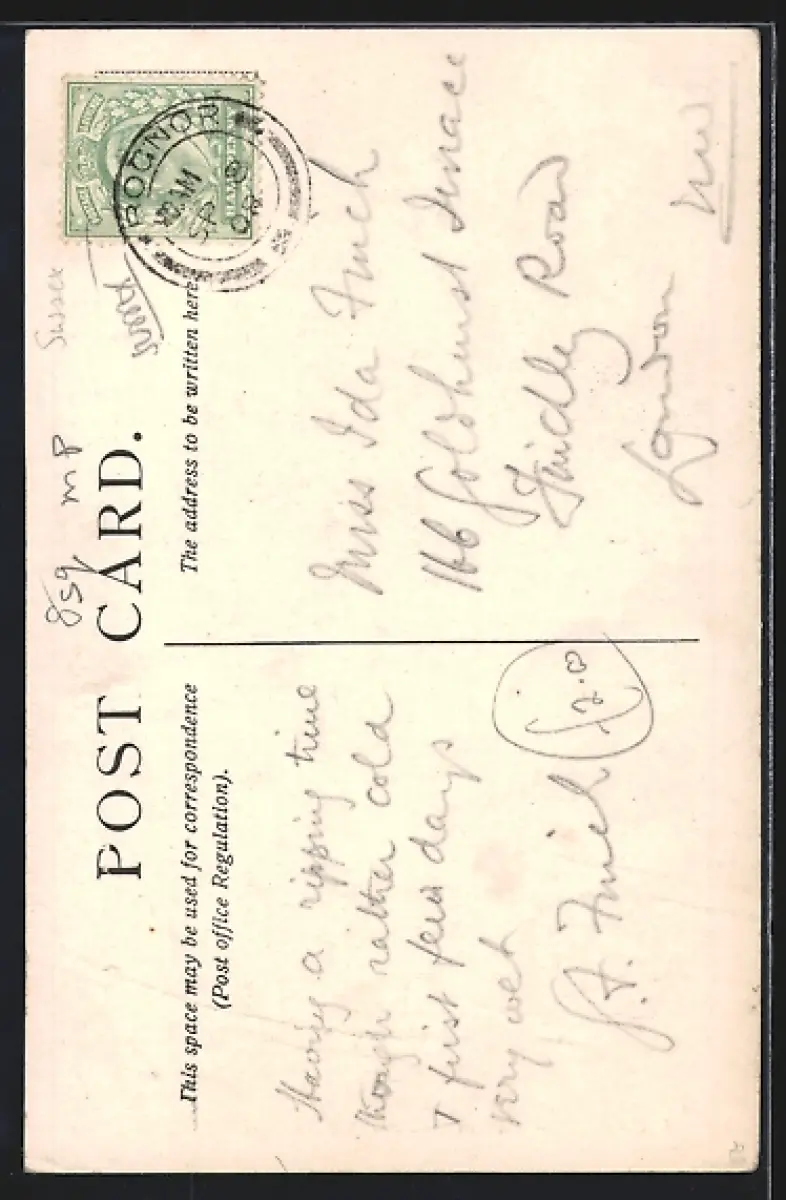 POST CARD.
This space may be used for correspondence
(Post office Regulation).
The address to be written here.
Having a ripping time
though rather cold
+ first few days
very wet
Finch
£2.0
Miss Ida Finch
166 Goldhurst Terrace
Finchley Road
London
NW
Sussex
MP
BOGNOR
AM
SP